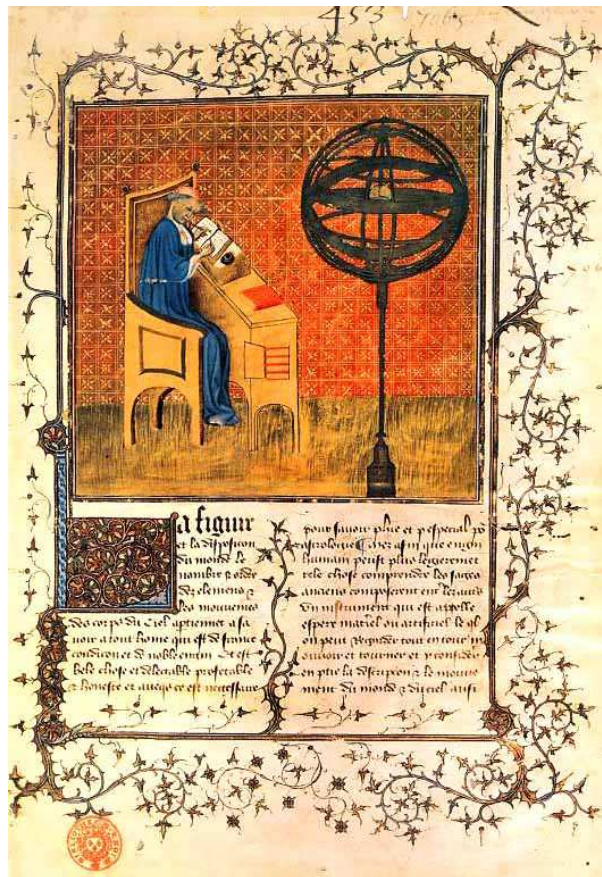 453
a figur
et la disposicion
du monde le
nombre & ordr
dez elemens &
les mouvemens
des corps du ciel aptienent a sa
voir a tout home qui est de franc
condicion et de noble engin Et est
bele chose et delectable profetable
& honeste et avecqe ce est necessair
pour savoir et p especial po
astrologie afin que engin
humain peust plus legierement
tele chose comprendre les sages
anciens composerent un
Un instrument qui est appelle
espere materiel ou artificiel le ql
on peut regarder tout entour m
ouvoir et tourner et p considerer
en ptie la discripcion & le mouve
ment du monde & du ciel aussi